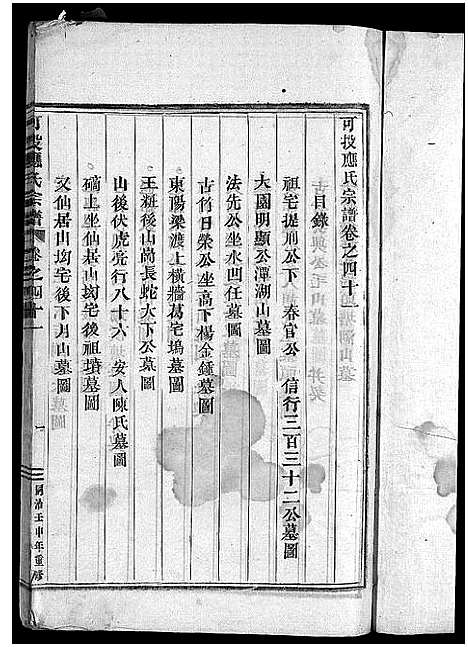 可投應氏宗譜卷之四十一
目錄
祖宅提刑公下 春官公 信行三百三十二公墓圖
大園明顯公潭湖山墓圖
法先公坐水凹任墓圖
古竹日榮公坐高下楊金鍾墓圖
東陽梁渡上橫牆萬宅塢墓圖
王粧後山崗長蛇大下公墓圖
山後伏虎亮行八十六 安人陳氏墓圖
礀上坐仙居山坳宅後祖墳墓圖
又仙居山坳宅後下月山墓圖
可投應氏宗譜
卷之四十一
一
同治壬申年重修